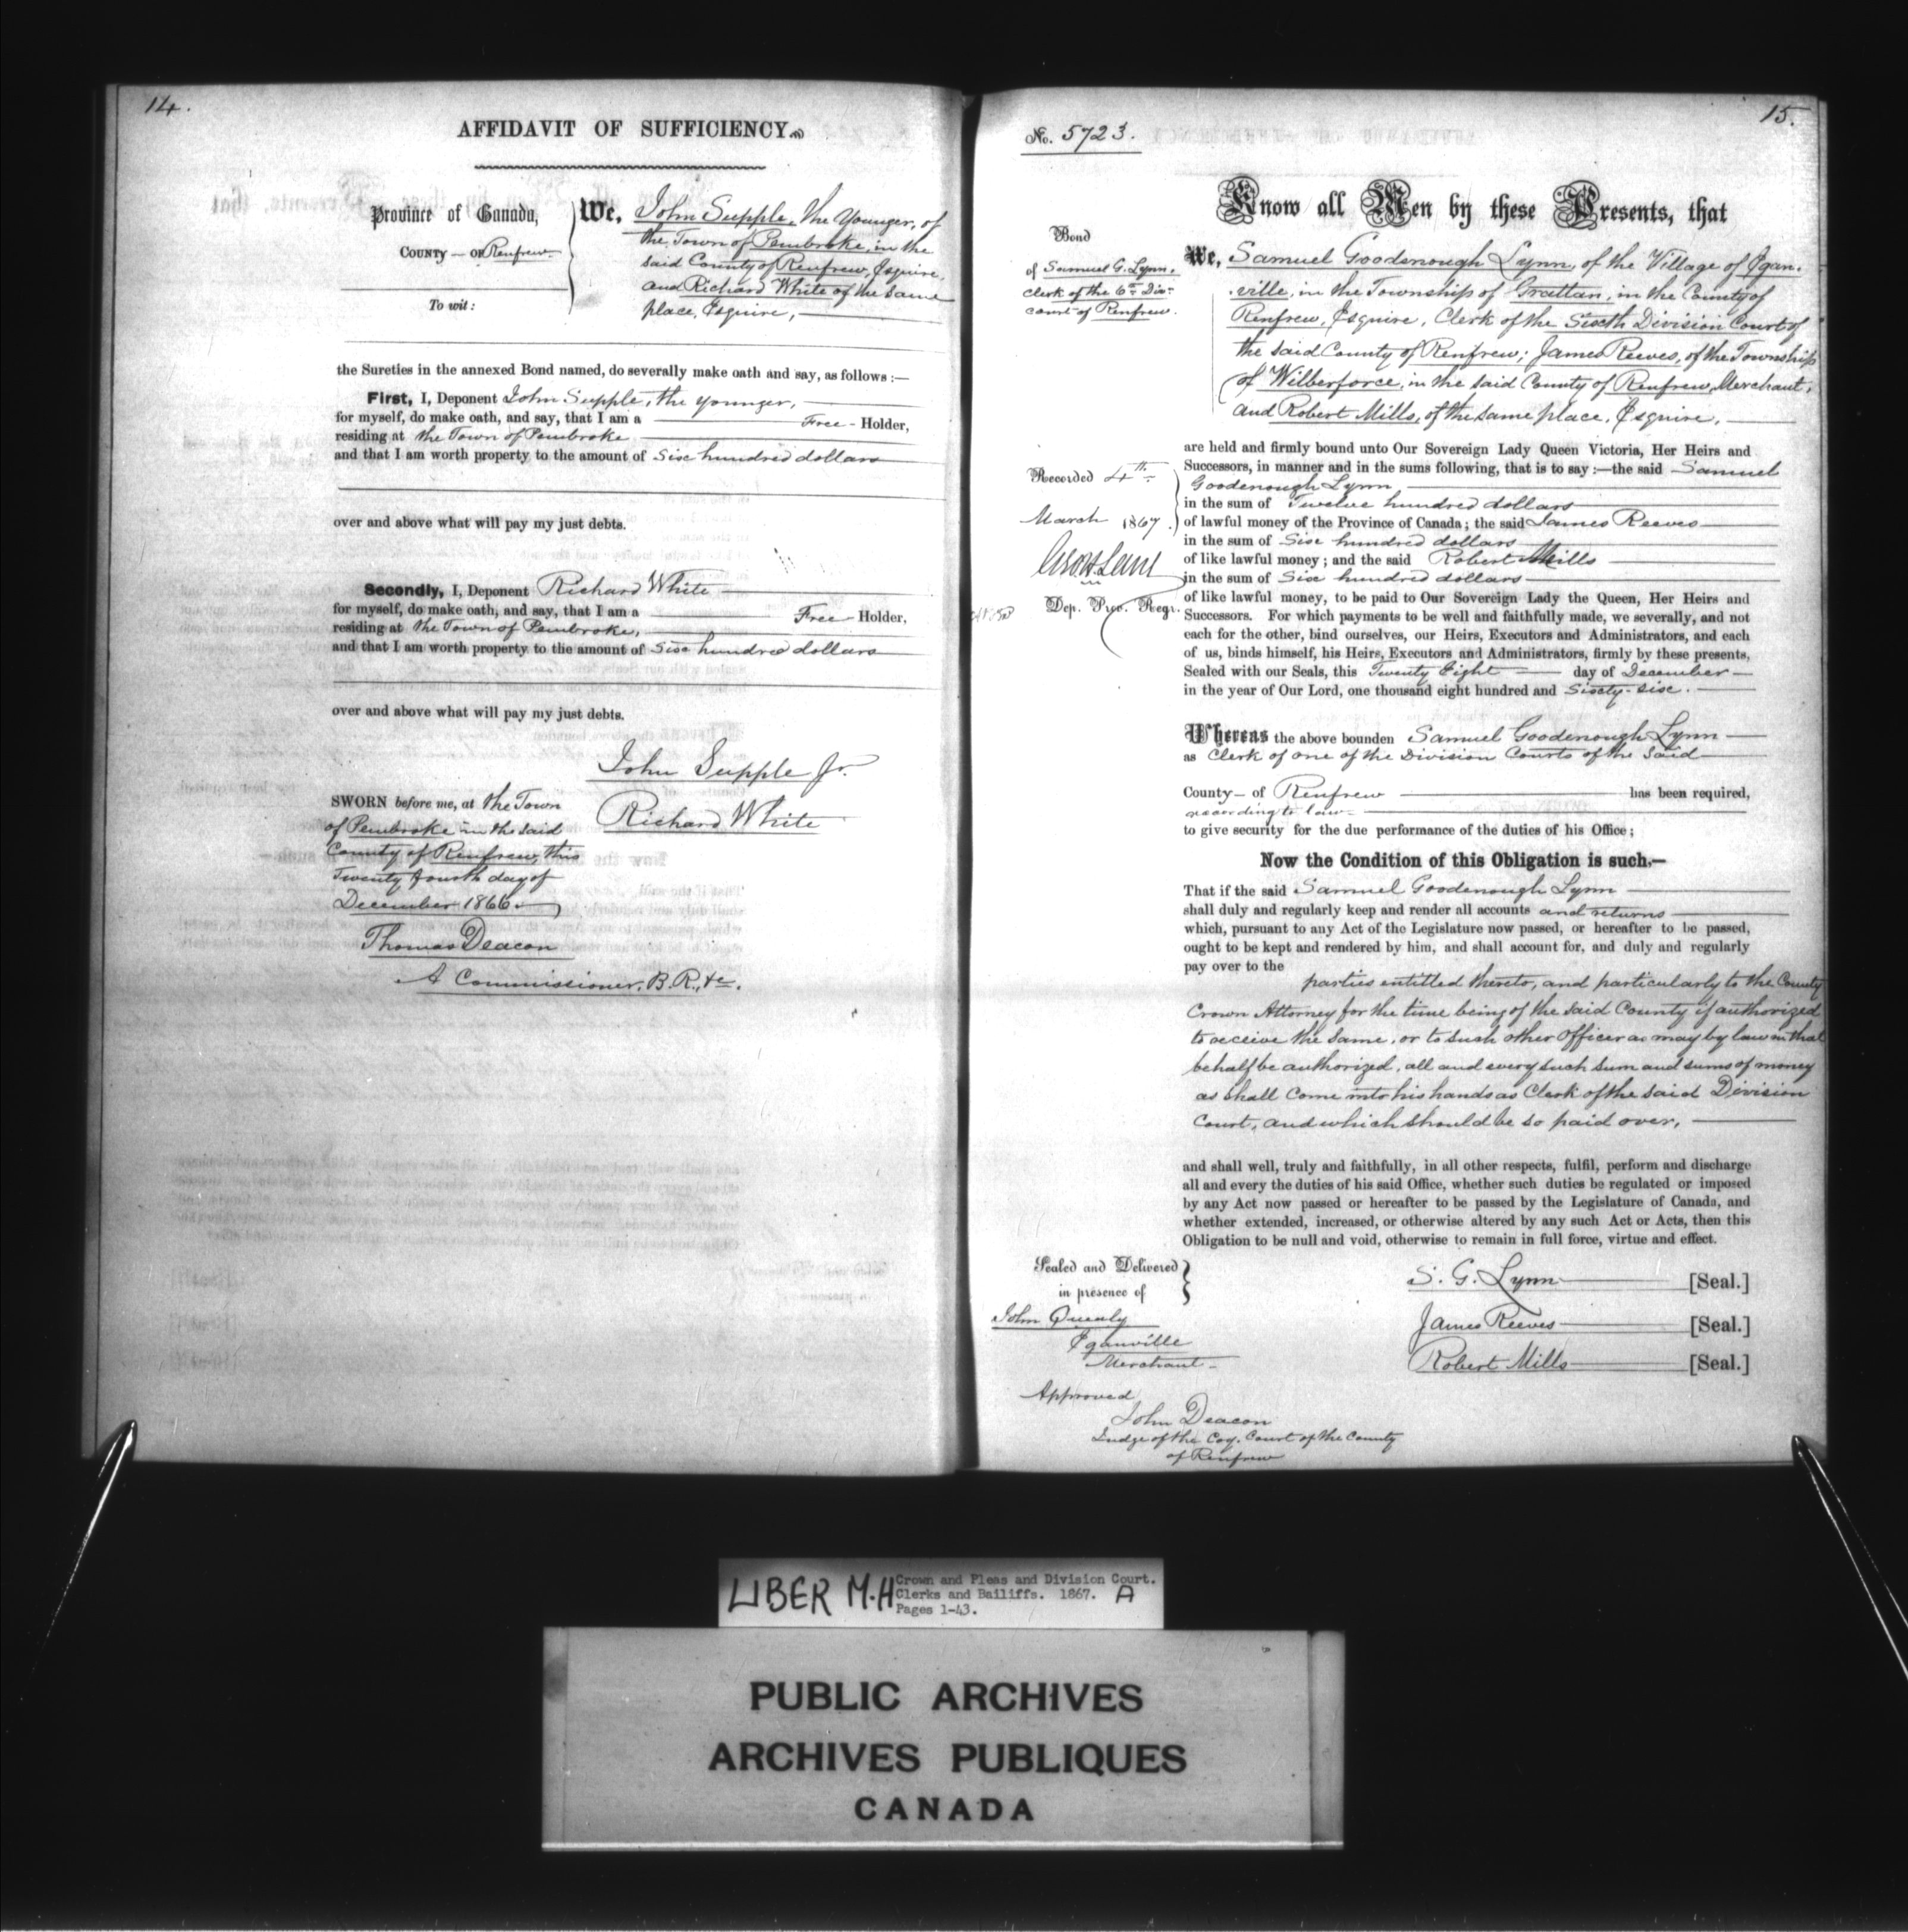 14.
AFFIDAVIT OF SUFFICIENCY.
Province of Canada,
COUNTY — OF Renfrew.
To wit:
We, John Supple, the Younger, of
the Town of Pembroke, in the
said County of Renfrew, Esquire,
and Richard White of the same
place, Esquire, —
the Sureties in the annexed Bond named, do severally make oath and say, as follows :—
First, I, Deponent John Supple, the younger, —
for myself, do make oath, and say, that I am a — Free - Holder,
residing at the Town of Pembroke
and that I am worth property to the amount of Six hundred dollars
over and above what will pay my just debts.
Secondly, I, Deponent Richard White —
for myself, do make oath, and say, that I am a — Free - Holder,
residing at the Town of Pembroke, —
and that I am worth property to the amount of Six hundred dollars
over and above what will pay my just debts.
John Supple Jr.
Richard White
SWORN before me, at the Town
of Pembroke in the said
County of Renfrew, this
Twenty fourth day of
December 1866.
Thomas Deacon
A Commissioner, B. R., &c.
15.
No. 5723.
Know all Men by these Presents, that
Bond
of Samuel G. Lynn,
Clerk of the 6th Div:
court of Renfrew.
We, Samuel Goodenough Lynn, of the Village of Egan-
ville, in the Township of Grattan, in the County of
Renfrew, Esquire, Clerk of the Sixth Division Court of
the said County of Renfrew; James Reeves, of the Township
of Wilberforce, in the said County of Renfrew, Merchant,
and Robert Mills, of the same place, Esquire, —
are held and firmly bound unto Our Sovereign Lady Queen Victoria, Her Heirs and
Successors, in manner and in the sums following, that is to say :—the said Samuel
Goodenough Lynn, —
in the sum of Twelve hundred dollars —
of lawful money of the Province of Canada ; the said James Reeves —
in the sum of Six hundred dollars —
of like lawful money ; and the said Robert Mills —
in the sum of Six hundred dollars —
of like lawful money, to be paid to Our Sovereign Lady the Queen, Her Heirs and
Successors. For which payments to be well and faithfully made, we severally, and not
each for the other, bind ourselves, our Heirs, Executors and Administrators, and each
of us, binds himself, his Heirs, Executors and Administrators, firmly by these presents,
Sealed with our Seals, this Twenty Eight — day of December —
in the year of Our Lord, one thousand eight hundred and Sixty-six. —
Recorded 4th
March 1867.
Dep. Prov. Regr.
Whereas the above bounden Samuel Goodenough Lynn —
as Clerk of one of the Division Courts of the said —
County — of Renfrew — has been required,
according to law —
to give security for the due performance of the duties of his Office ;
Now the Condition of this Obligation is such.—
That if the said Samuel Goodenough Lynn —
shall duly and regularly keep and render all accounts and returns —
which, pursuant to any Act of the Legislature now passed, or hereafter to be passed,
ought to be kept and rendered by him, and shall account for, and duly and regularly
pay over to the
parties entitled thereto, and particularly to the County
Crown Attorney for the time being of the said County if authorized
to receive the same, or to such other Officer as may by law in that
behalf be authorized, all and every such sum and sums of money
as shall come into his hands as Clerk of the said Division
Court, and which should be so paid over, —
and shall well, truly and faithfully, in all other respects, fulfil, perform and discharge
all and every the duties of his said Office, whether such duties be regulated or imposed
by any Act now passed or hereafter to be passed by the Legislature of Canada, and
whether extended, increased, or otherwise altered by any such Act or Acts, then this
Obligation to be null and void, otherwise to remain in full force, virtue and effect.
Sealed and Delivered
in presence of
John Quealy
Eganville
Merchant —
S. G. Lynn — [Seal.]
James Reeves — [Seal.]
Robert Mills — [Seal.]
Approved
John Deacon
Judge of the Coy. Court of the County
of Renfrew
LIBER M.H
Crown and Pleas and Division Court.
Clerks and Bailiffs. 1867. A
Pages 1-43.
PUBLIC ARCHIVES
ARCHIVES PUBLIQUES
CANADA